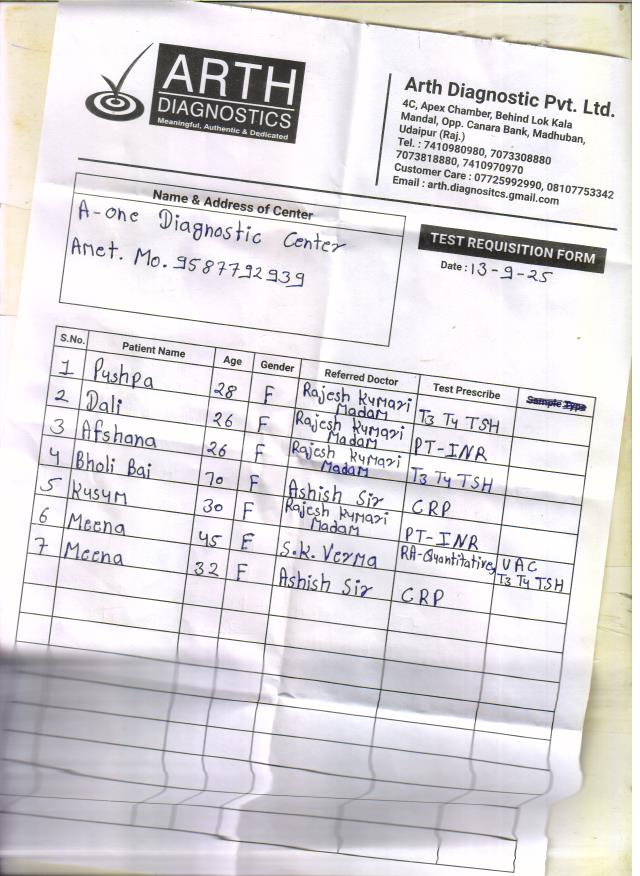 ARTH
DIAGNOSTICS
Meaningful, Authentic & Dedicated
Arth Diagnostic Pvt. Ltd.
4C, Apex Chamber, Behind Lok Kala
Mandal, Opp. Canara Bank, Madhuban,
Udaipur (Raj.)
Tel. : 7410980980, 7073308880
7073818880, 7410970970
Customer Care : 07725992990, 08107753342
Email : arth.diagnositcs.gmail.com
Name & Address of Center
A-one Diagnostic Center
Amet. Mo. 9587792939
TEST REQUISITION FORM
Date : 13-9-25
S.No. Patient Name Age Gender Referred Doctor Test Prescribe Sample Type
1 Pushpa 28 F Rajesh Kumari Madam T3 T4 TSH
2 Dali 26 F Rajesh Kumari Madam PT-INR
3 Afshana 26 F Rajesh Kumari Madam T3 T4 TSH
4 Bholi Bai 70 F Ashish Sir CRP
5 Kusum 30 F Rajesh Kumari Madam PT-INR
6 Meena 45 F S.K. Verma RA-Quantitative, UAC T3 T4 TSH
7 Meena 32 F Ashish Sir CRP